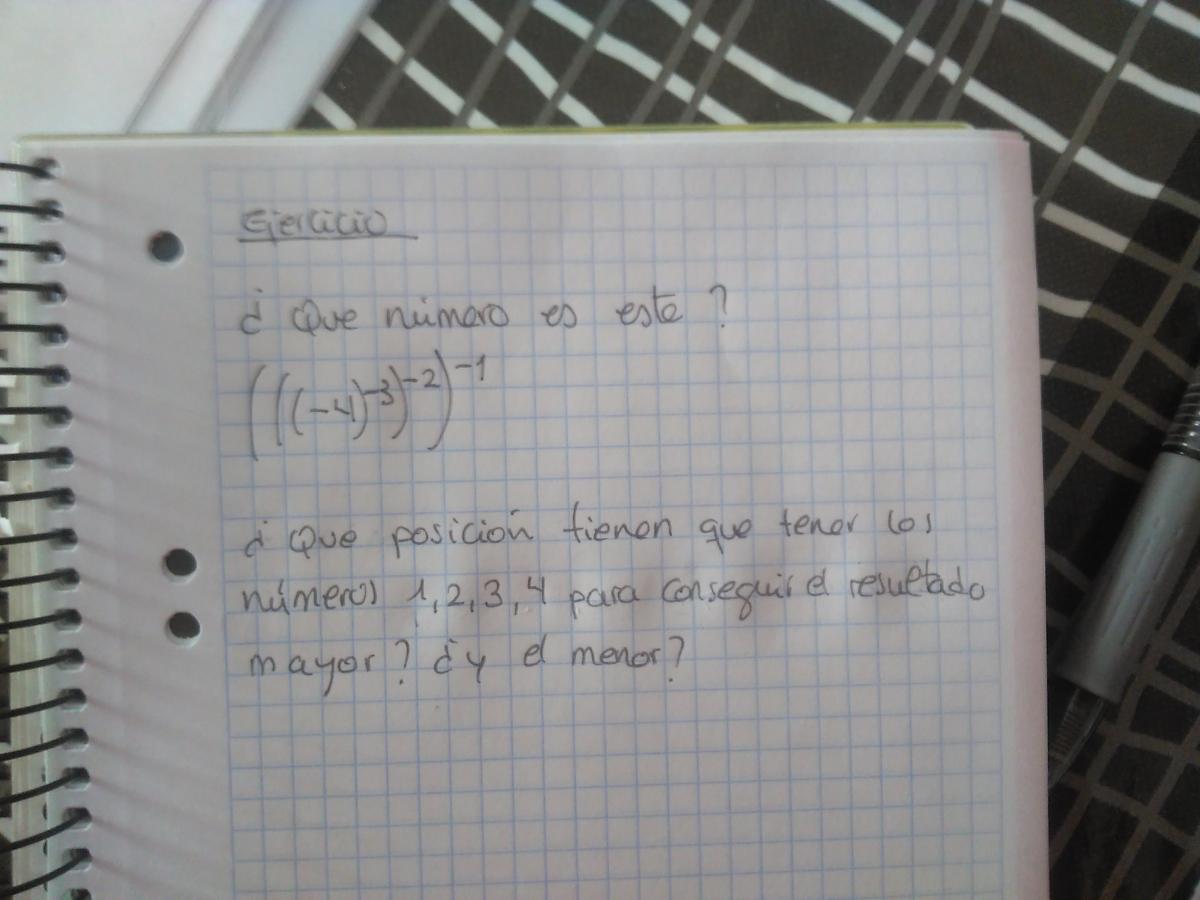 Ejercicio
¿ Que número es este ?
(((-4)⁻³)⁻²)⁻¹
¿ Que posición tienen que tener los
números 1, 2, 3, 4 para conseguir el resultado
mayor? ¿y el menor?